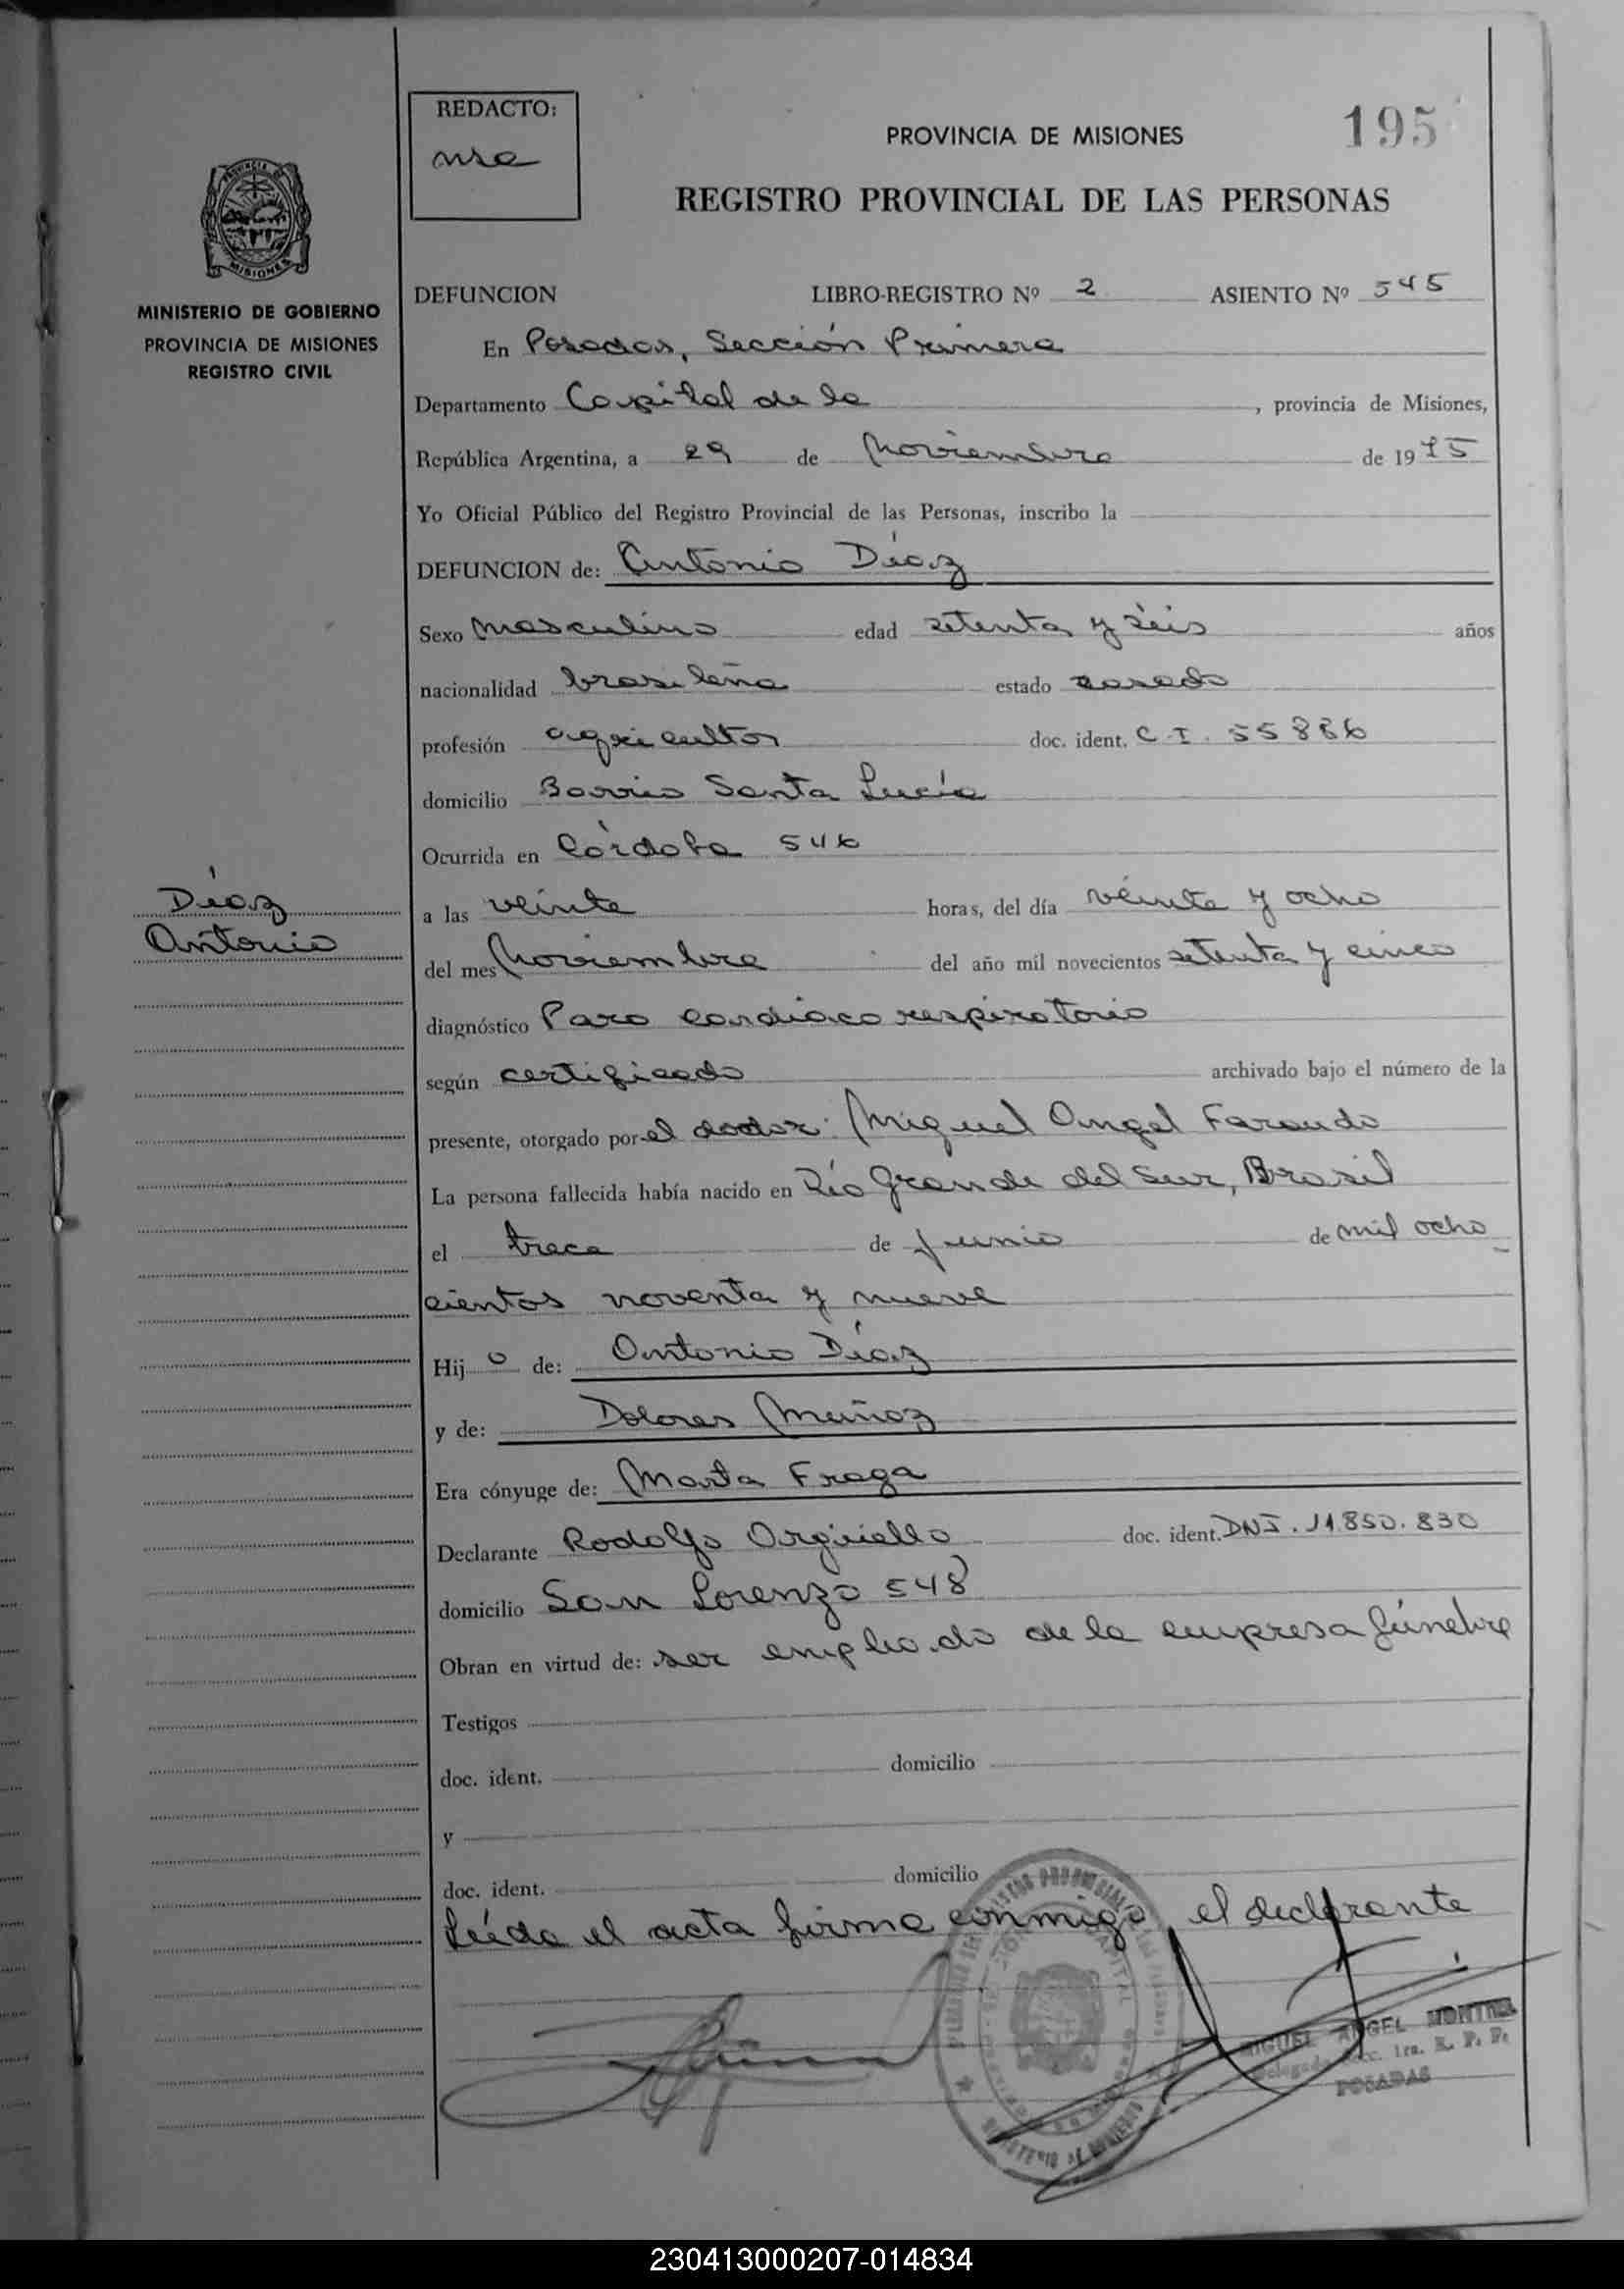 REDACTO:
nra
PROVINCIA DE MISIONES
195
REGISTRO PROVINCIAL DE LAS PERSONAS
MISIONES
MINISTERIO DE GOBIERNO
PROVINCIA DE MISIONES
REGISTRO CIVIL
DEFUNCION LIBRO-REGISTRO Nº 2 ASIENTO Nº 545
En Posadas, Sección Primera
Departamento Capital de la , provincia de Misiones,
República Argentina, a 29 de Noviembre de 1975
Yo Oficial Público del Registro Provincial de las Personas, inscribo la
DEFUNCION de: Antonio Díaz
Sexo Masculino edad setenta y seis años
nacionalidad brasileña estado casado
profesión agricultor doc. ident. C.I. 55886
domicilio Barrio Santa Lucía
Ocurrida en Córdoba 546
Díaz
Antonio
a las veinte horas, del día veinte y ocho
del mes Noviembre del año mil novecientos setenta y cinco
diagnóstico Paro cardíaco respiratorio
según certificado archivado bajo el número de la
presente, otorgado por el doctor: Miguel Angel
La persona fallecida había nacido en Río Grande del Sur, Brasil
el trece de junio de mil ocho
cientos noventa y nueve
Hijo de: Antonio Díaz
y de: Dolores Muñoz
Era cónyuge de: Marta Fraga
Declarante Rodolfo Argüello doc. ident. DNI. 11.850.830
domicilio San Lorenzo 548
Obran en virtud de: ser empleado de la empresa fúnebre
Testigos
doc. ident. domicilio
y
doc. ident. domicilio
Leída el acta firma conmigo, el declarante
MIGUEL ANGEL
Delegado Secc. 1ra. R. P. P.
POSADAS
230413000207-014834